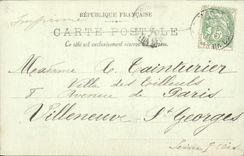 Imprimé
RÉPUBLIQUE FRANÇAISE
CARTE POSTALE
Ce côté est exclusivement réservé à l'adresse
Madame L. Tainturier
Villa des Tilleuls
8 Avenue de Paris
Villeneuve St Georges
Seine & Oise